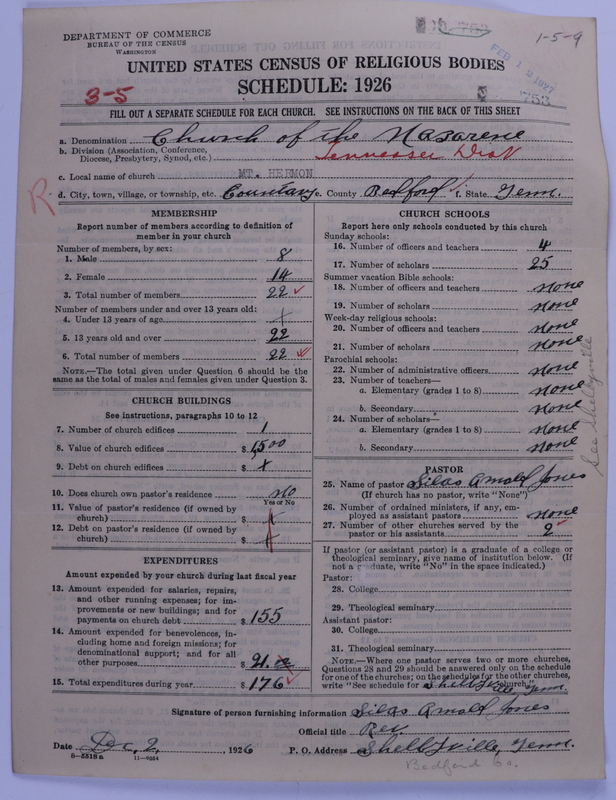 DEPARTMENT OF COMMERCE
BUREAU OF THE CENSUS
WASHINGTON
753
1-5-9
FEB 12 1927
UNITED STATES CENSUS OF RELIGIOUS BODIES
SCHEDULE: 1926
3-5
753
FILL OUT A SEPARATE SCHEDULE FOR EACH CHURCH. SEE INSTRUCTIONS ON THE BACK OF THIS SHEET
a. Denomination Church of the Nazarene
b. Division (Association, Conference, Diocese, Presbytery, Synod, etc.) Tennessee Dist
c. Local name of church MT. HERMON
R.
d. City, town, village, or township, etc. Country e. County Bedford f. State Tenn.
MEMBERSHIP
Report number of members according to definition of
member in your church
Number of members, by sex:
1. Male 8
2. Female 14
3. Total number of members 22 ✓
Number of members under and over 13 years old:
4. Under 13 years of age
5. 13 years old and over 22
6. Total number of members 22 ✓
NOTE.—The total given under Question 6 should be
the same as the total of males and females given under Question 3.
CHURCH BUILDINGS
See instructions, paragraphs 10 to 12
7. Number of church edifices 1
8. Value of church edifices $ 1,500
9. Debt on church edifices $ x
10. Does church own pastor's residence no
Yes or No
11. Value of pastor's residence (if owned by
church) $
12. Debt on pastor's residence (if owned by
church) $
EXPENDITURES
Amount expended by your church during last fiscal year
13. Amount expended for salaries, repairs,
and other running expenses; for im-
provements or new buildings; and for
payments on church debt $ 155
14. Amount expended for benevolences, in-
cluding home and foreign missions; for
denominational support; and for all
other purposes $ 21.
15. Total expenditures during year $ 176 ✓
CHURCH SCHOOLS
Report here only schools conducted by this church
Sunday schools:
16. Number of officers and teachers 4
17. Number of scholars 25
Summer vacation Bible schools:
18. Number of officers and teachers none
19. Number of scholars none
Week-day religious schools:
20. Number of officers and teachers none
21. Number of scholars none
Parochial schools:
22. Number of administrative officers none
23. Number of teachers—
a. Elementary (grades 1 to 8) none
b. Secondary none
24. Number of scholars—
a. Elementary (grades 1 to 8) none
b. Secondary none
See Shelbyville
PASTOR
25. Name of pastor Silas Arnold Jones
(If church has no pastor, write "None")
26. Number of ordained ministers, if any, em-
ployed as assistant pastors none
27. Number of other churches served by the
pastor or his assistants 2
If pastor (or assistant pastor) is a graduate of a college or
theological seminary, give name of institution below. (If
not a graduate, write "No" in the space indicated.)
Pastor:
28. College
29. Theological seminary
Assistant pastor:
30. College
31. Theological seminary
NOTE.—Where one pastor serves two or more churches,
Questions 28 and 29 should be answered only on the schedule
for one of the churches; on the schedules for the other churches,
write "See schedule for Shellville, Tenn. church."
Signature of person furnishing information Silas Arnold Jones
Official title Rev.
Date Dec, 2, 1926 P. O. Address Shellville, Tenn.
8—5518a 11—9264
Bedford Co.